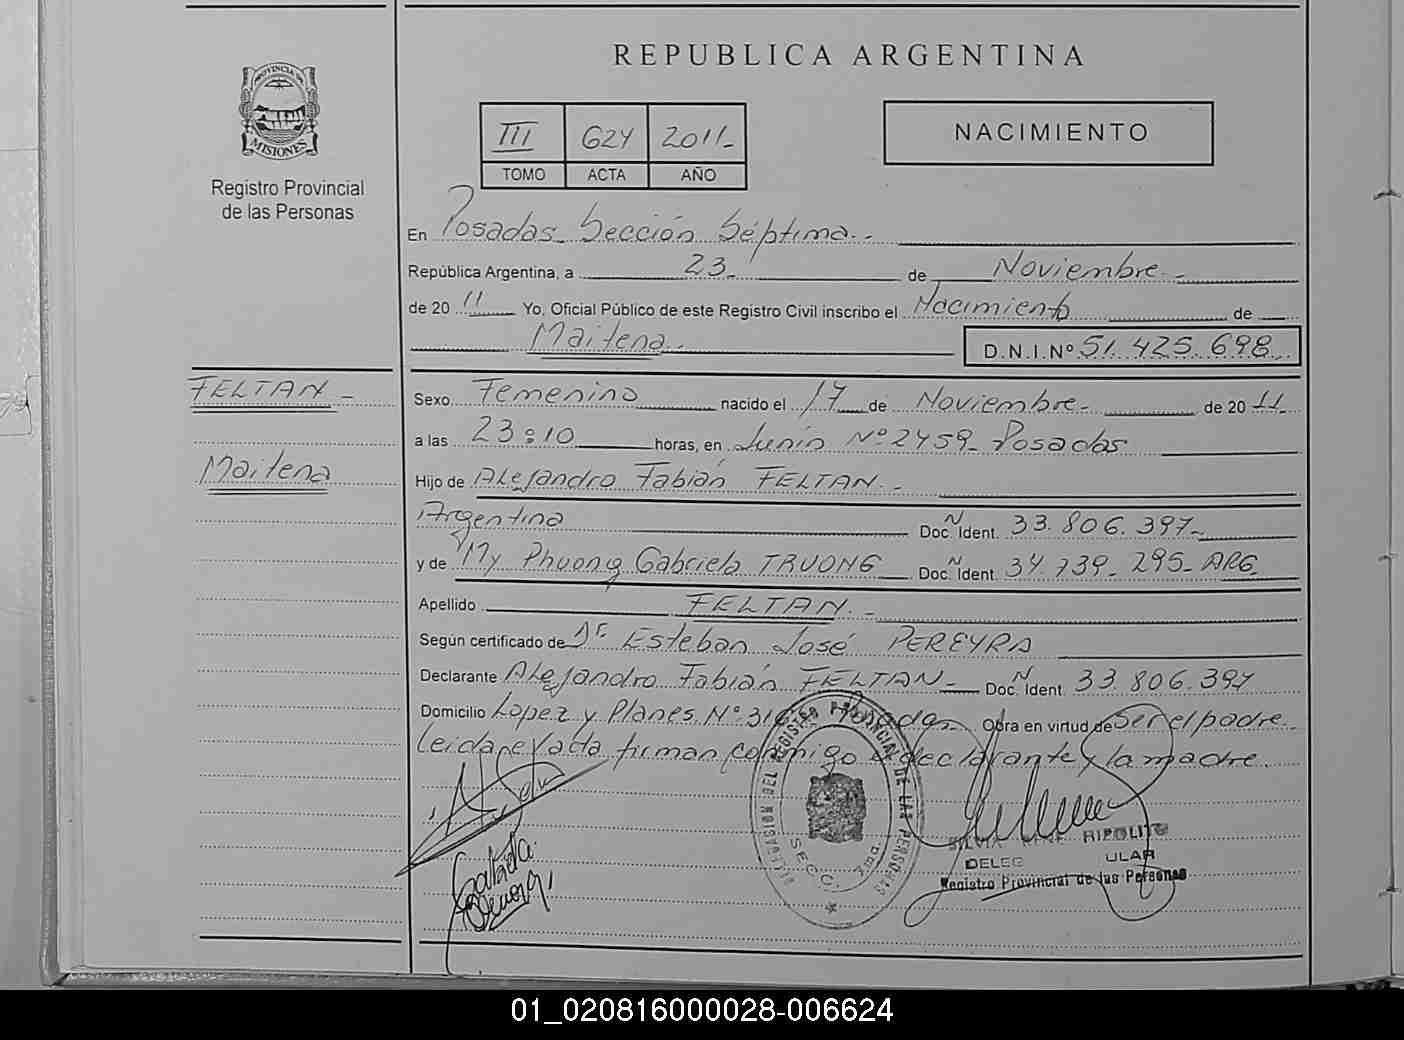 REPUBLICA ARGENTINA
PROVINCIA DE
MISIONES
Registro Provincial
de las Personas
III 624 2011-
TOMO ACTA AÑO
NACIMIENTO
En Posadas Sección Séptima.-
República Argentina, a 23- de Noviembre-
de 20 11 Yo, Oficial Público de este Registro Civil inscribo el Nacimiento de
Maitena.- D.N.I.Nº 51.425.698
FELTAN -
Maitena
Sexo Femenino nacido el 17 de Noviembre- de 20 11-
a las 23:10 horas, en Junín Nº 2459- Posadas
Hijo de Alejandro Fabián FELTAN.-
Argentina Doc. N Ident. 33.806.397-
y de My Phuong Gabriela TRUONG Doc. N Ident. 34.739.295- ARG.
Apellido FELTAN.-
Según certificado de Dr Esteban José PEREYRA
Declarante Alejandro Fabián FELTAN- Doc. N Ident. 33.806.397
Domicilio Lopez y Planes Nº 316 Posadas Obra en virtud de Ser el padre
Leida el acta firman conmigo el declarante y la madre.
DELEGACION DEL REGISTRO PROVINCIAL DE LAS PERSONAS
SECC. 7ma.
SILVIA RIPOLITO
Registro Provincial de las Personas
01_020816000028-006624